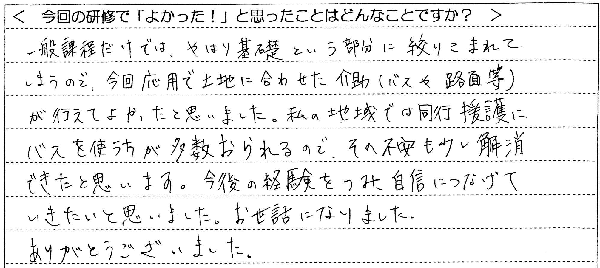 ＜　今回の研修で「よかった！」と思ったことはどんなことですか？　＞
一般課程だけでは、やはり基礎という部分に絞りこまれて
しまうので、今回応用で土地に合わせた介助(バスや路面等)
が行えてよかったと思いました。私の地域では同行援護に
バスを使う方が多数おられるので、その不安も少し解消
できたと思います。今後の経験をつみ自信につなげて
いきたいと思いました。お世話になりました。
ありがとうございました。